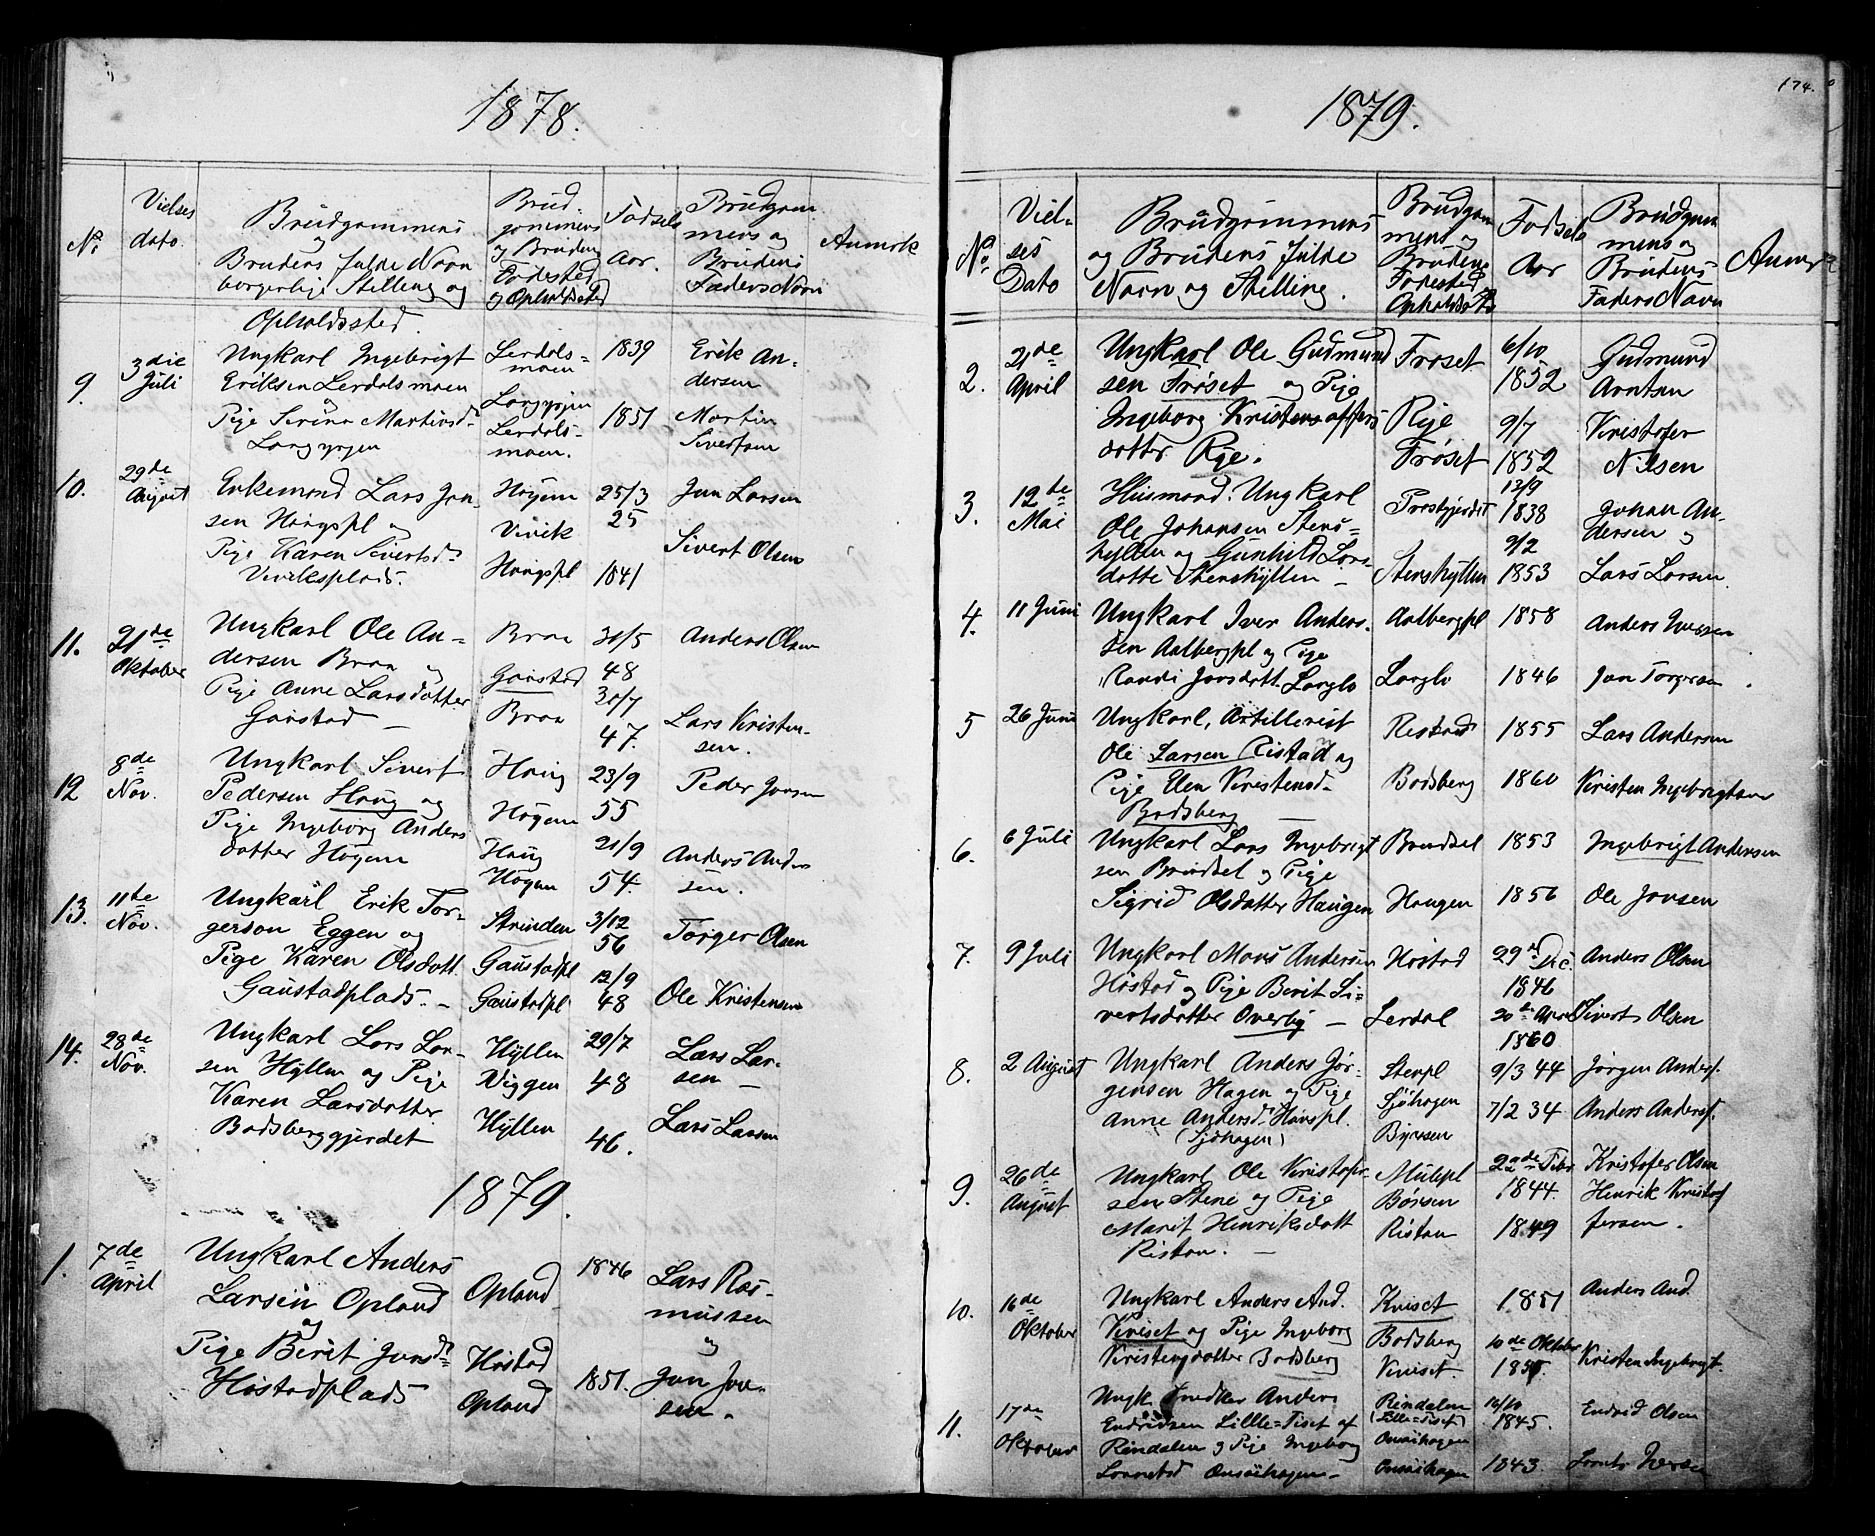 1878.
No
Vielses
dato.
Brudgommens
og
Brudens fulde Navn
borgerlige Stilling og
Opholdssted.
Brud
gommens
og Brudens
Fødested
og Opholdssted
Fødsels
Aar.
Brudgom
mens og
Brudens
Faders Navn
Anmærk
9. 3die
Juli
Ungkarl Ingebrigt
Eriksen Lerdalsmoen
og
Pige Serina Martinsd.
Langgjen
Lerdals=
moen
Lerdals-
moen.
1839
1851
Erik An-
dersen
Martin
Sivertsen
10. 29de
August
Enkemand Lars Jon-
sen Haugspl og
Pige Karen Sivertsd.
Viviksplads.
Høgem
Vivik
Haugspl
25/3
25
1841
Jon Larsen
Sivert Olsen
11. 21de
Oktober
Ungkarl Ole An-
dersen Braa og
Pige Anne Larsdatter
Gaustad —
Braa
Gaustad
Braa
30/5
48
30/7
47.
Anders Olsen
Lars Kristen-
sen.
12 8de
Nov.
Ungkarl Sivert
Pedersen Haug og
Pige Ingeborg Anders
datter Høgem
Haug
Høgem
Haug
Høgem
23/9
55
21/9
54.
Peder Jonsen
Anders Anders
sen.
13. 11te
Nov.
Ungkarl Erik Tor-
gerson Eggen og
Pige Karen Olsdatt.
Gaustadplads. —
Strinden
Gaustadpl
Gaustadpl
3/12
56
12/9
48
Torger Olsen
Ole Kristensen
14. 28de
Nov.
Ungkarl Lars Lar-
sen Hyllen og Pige
Karen Larsdatter
Bodsberggjerdet
Hyllen
Viggen
Hyllen
29/7
48
46.
Lars Lar-
sen —
Lars Larsen
1879.
1. 7de
April
Ungkarl Anders
Larsen Opland
og
Pige Berit Jonsd.
Høstadplads
Opland
Høstad
Opland
1846
1851.
Lars Ras-
mussen
og
Jon Jon-
sen.
174.
1879.
No.
Viel-
ses
Dato
Brudgommens
og Brudens fulde
Navn og Stilling.
Brudgom
mens og
Brudens
Fødested
Opholdssted
Fødsels
Aar
Brudgom
mens og
Brudens
Faders Navn
Anmærk
2. 21de
April
Ungkarl Ole Gudmund
sen Frøset og Pige
Ingeborg Kristensoffers
datter Rye.
Frøset
Rye
Frøset
6/10
1852
9/7
1852
Gudmund
Arntsen
Kristofer
Nilsen
3. 12te
Mai
Husmand. Ungkarl
Ole Johansen Stens=
hyllen og Gunhild Lars
datter Stenshyllen —
Stenshyllen
13/9
1838
9/2
1853
Johan An-
dersen og
Lars Larsen.
4. 11 Juni
Ungkarl Iver Anders.
sen Aalbergpl og Pige
Randi Jonsdatt. Langlo
Aalbergpl
Langlo
1858
1846
Anders Iversen
Jon Torgersen.
5 26 Juni
Ungkarl, Artillerist
Ole Larsen Ristad og
Pige Elen Kristensd.
Bodsberg —
Ristad
Bodsberg
1855
1860
Lars Andersen
Kristen Ingebrigtsen
6. 6 Juli
Ungkarl Lars Ingebrigt
sen Brudsel og Pige
Sigrid Olsdatter Haugen
Brudsel
Haugen
1853
1856
Ingebrigt Andersen
Ole Jonsen
7. 9 Juli
Ungkarl Mons Andersen
Høstad og Pige Berit Si-
vertsdatter Overby —
Høstad
Lerdal
29n Dec.
1846
20de April
1860
Anders Olsen
Sivert Olsen
8. 2 August
Ungkarl Anders Jør-
gensen Hagen og Pige
Anne Andersd. Havspl.
(Sjøhagen)
Stenpl
Sjøhagen
Byxsen
9/3 44
7/2 34
Jørgen Andersf.
Anders Andersf.
9. 26de
August
Ungkarl Ole Kristofer-
sen Stene og Pige
Marit Henriksdatt
Ristan. —
Mulepl
Børsen
Ristan
22de Febr
1844.
1849
Kristofer Olsen
Henrik Kristof
fersen.
10. 16de
Oktober
Ungkarl Anders And.
Kviset og Pige Ingeborg
Kristensdatter Bodsberg
Kviset
Bodsberg
Kviset.
1851
10de Oktober
Anders And.
Kristen Ingebrigt.
11. 17de
Oktober
Ungk. Anders
Endridsen Lille=Tiset af
Rindalen og Pige Ingeborg
Onsøihagen —
Rindalen
(Lille=Tiset)
Onsøihagen
Onsøihagen
16/10
1845.
1843.
Endrid Olsen